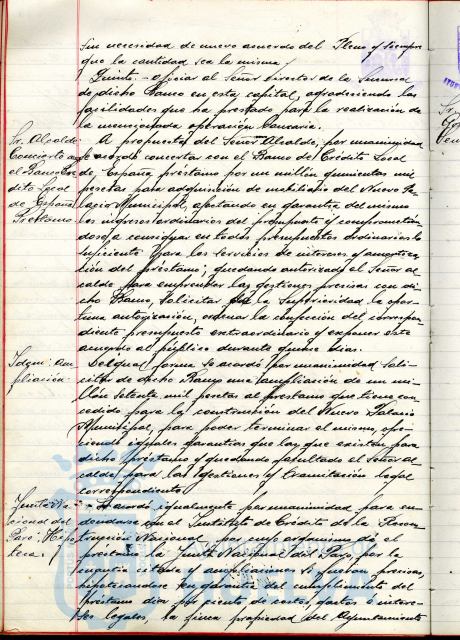 sin necesidad de nuevo acuerdo del Pleno y siempre
que la cantidad sea la misma
Quinto.- oficiar al Señor Director de la Sucursal
de dicho Banco en esta capital, agradeciendo las
facilidades que ha prestado para la realización de
la mencionada operación bancaria.
Sr. Alcalde
Concierto con
el Banco Cré
dito Local
de España
Préstamo
A propuesta del Señor Alcalde, por unanimidad
se acordó concertar con el Banco de Crédito Local
de España préstamo por un millón quinientas mil
pesetas para adquisición de mobiliario del Nuevo Pa-
lacio Municipal, afectando en garantía del mismo
los ingresos ordinarios del presupuesto y comprometién
dose a consignar en todos presupuestos ordinarios lo
suficiente para los servicios de intereses y amortiza-
ción del préstamo; quedando autorizado el Señor al
calde para emprender las gestiones precisas con di
cho Banco, solicitar de la Superioridad la opor-
tuna autorización, ordenar la confección del correspon-
diente presupuesto extraordinario y exponer este
acuerdo al público durante quince días.
Idem: am
pliación
De igual forma se acordó por unanimidad soli-
citar de dicho Banco una ampliación de un mi-
llón setenta mil pesetas al préstamo que tiene con-
cedido para la construcción del Nuevo Palacio
Municipal, para poder terminar el mismo, ofre-
ciendo iguales garantías que las que existen para
dicho préstamo y quedando facultado el señor al
calde para las gestiones y tramitación legal
correspondiente
Junta Na
cional del
Paro: Hipo
teca.
Se acordó igualmente por unanimidad para
en el Instituto de Crédito de la Recons-
trucción Nacional, por cuyo organismo dé el
préstamo la Junta Nacional del Paro, por la
cuantía citada y ampliaciones si fueran precisas,
hipotecándose en garantía del cumplimiento del
préstamo diez por ciento de costas, gastos e intere-
ses legales, la finca propiedad del Ayuntamiento
HUELVA